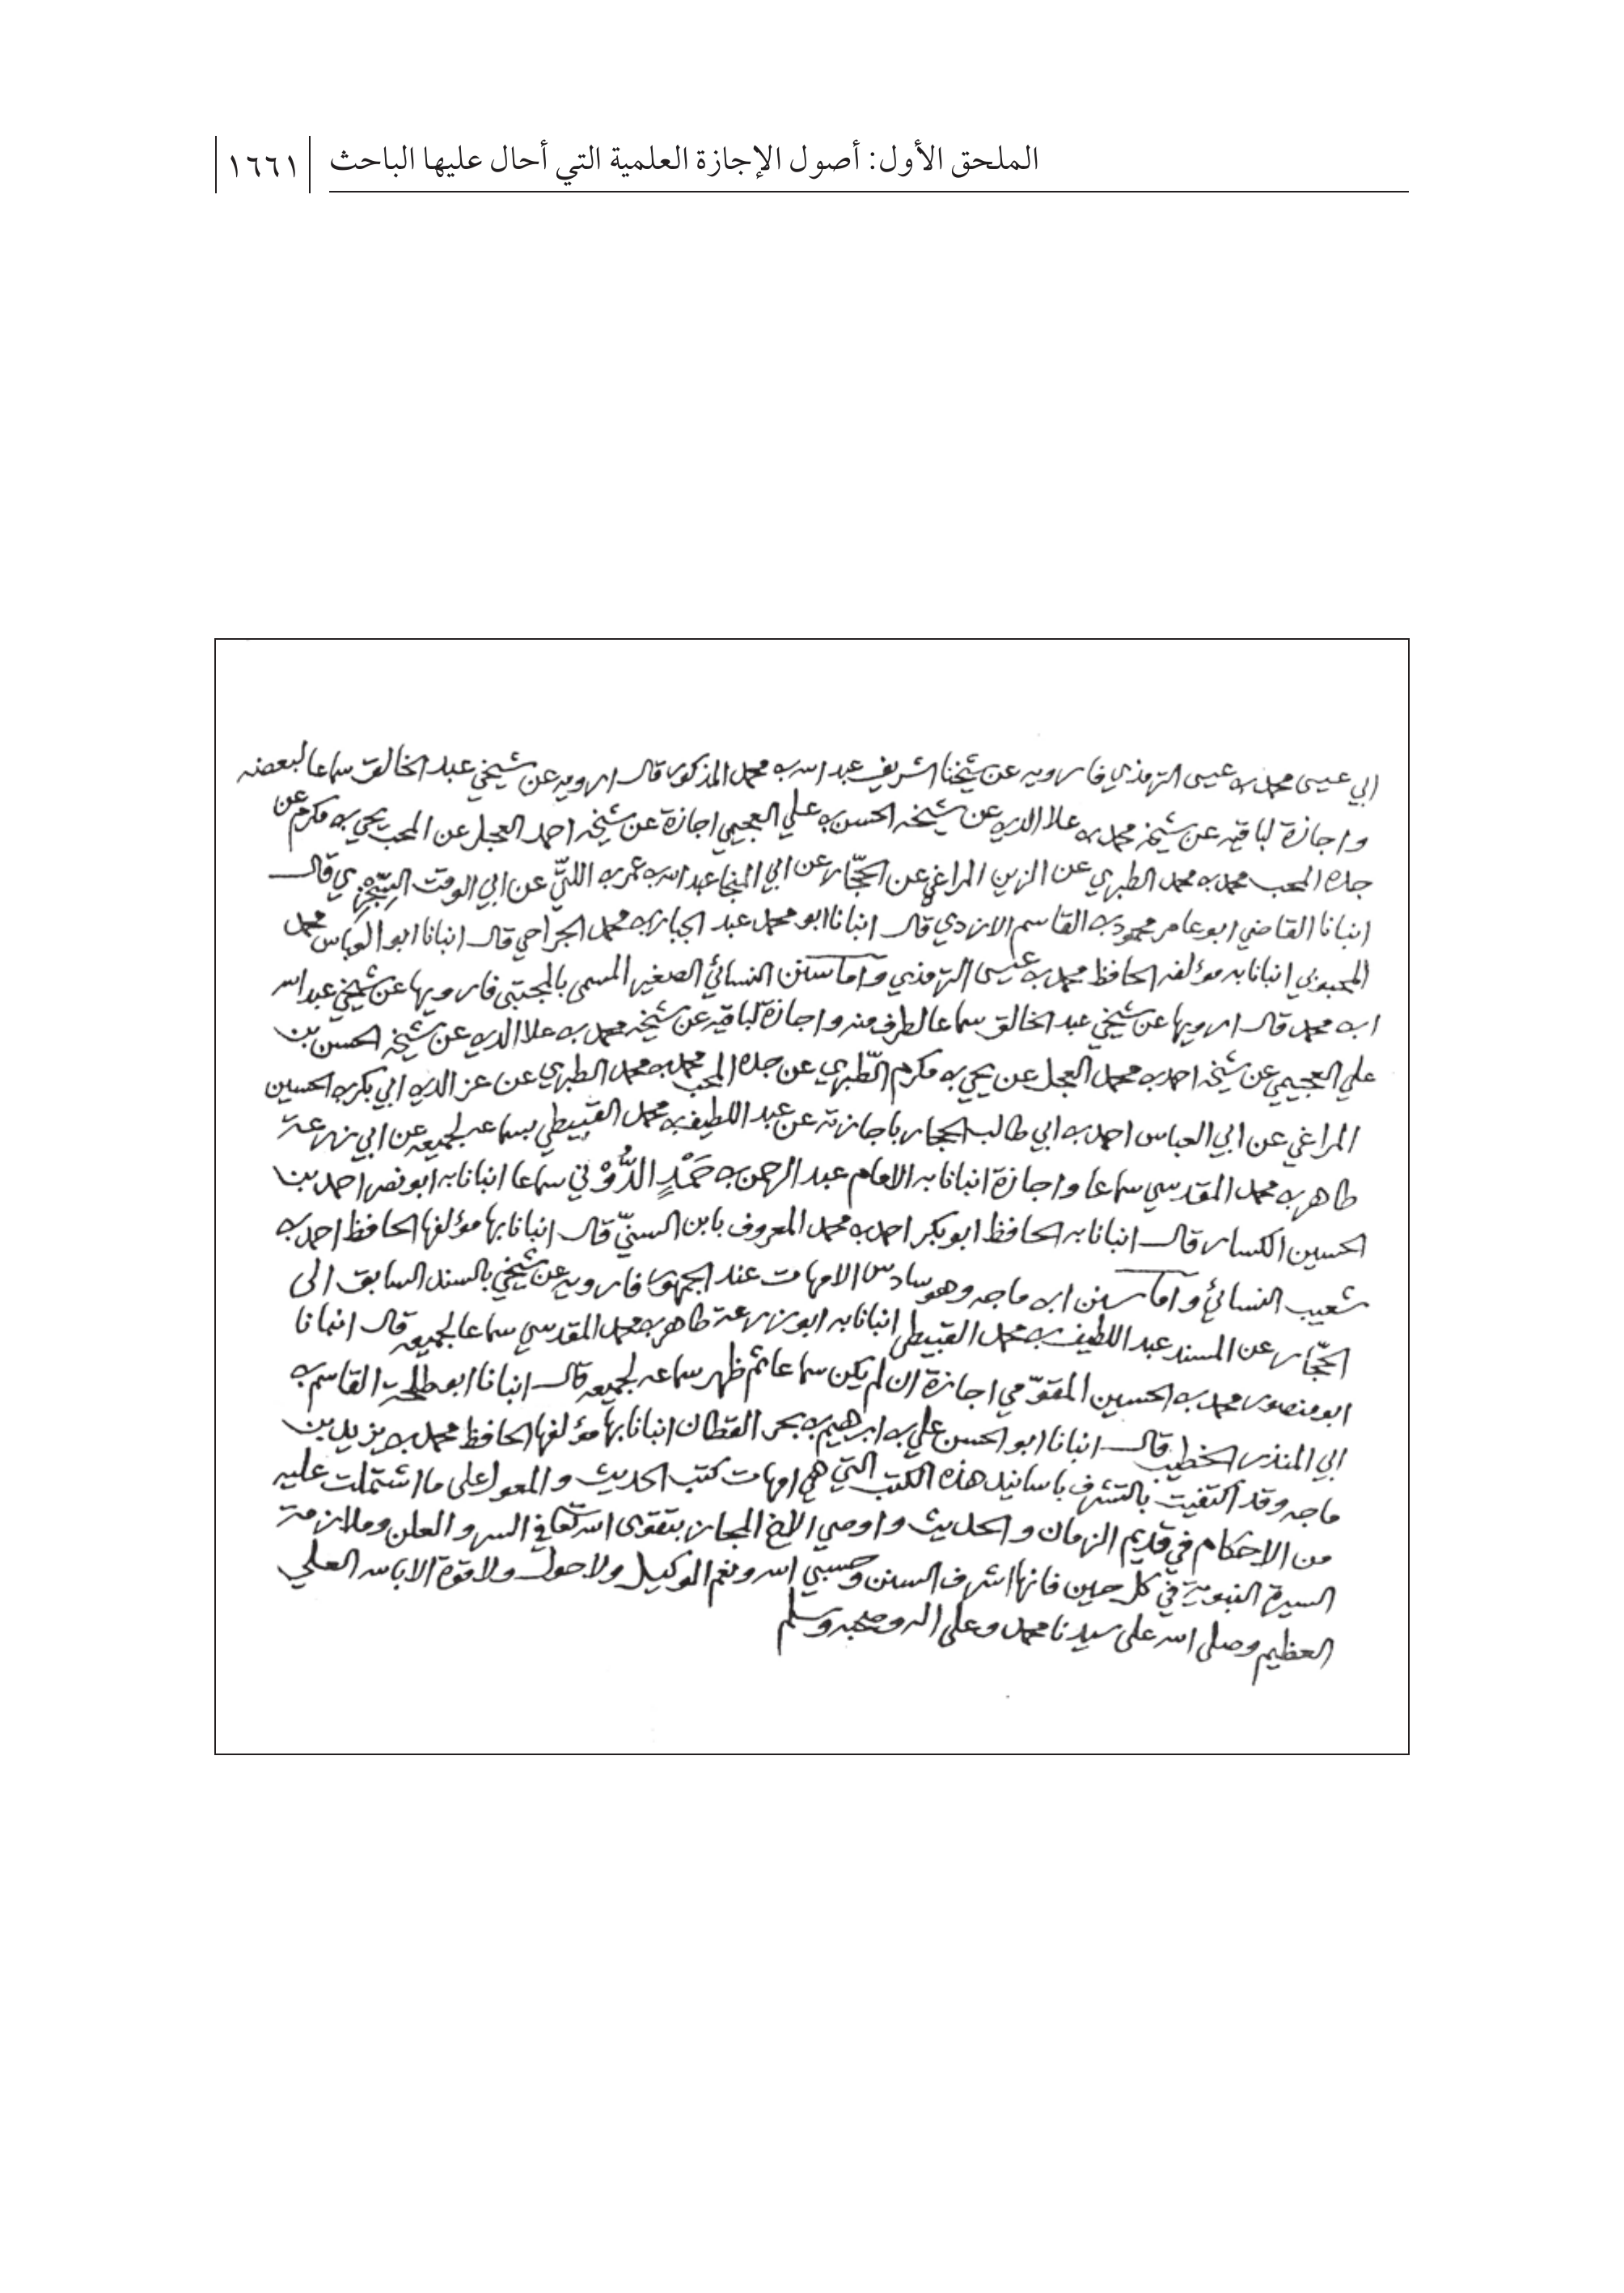 الملحق الأول: أصول الإجازة العلمية التي أحال عليها الباحث ١٦٦١
ابي عيسى محمد بن عيسى الترمذي فارويه عن شيخنا الشريف عبد الله بن محمد المذكور قال ارويه عن شيخي عبد الخالق سماعا لبعضه
واجازة لباقيه عن شيخه محمد بن علا الدين عن شيخه الحسن بن علي العجيمي اجازة عن شيخه احمد العجل عن المحب يحيى بن مكرم عن
جده المحب محمد بن محمد الطبري عن الزين المراغي عن الحجّار عن ابي المنجا عبد الله بن عمر بن اللتيّ عن ابي الوقت السّجزي قال
انبانا القاضي ابو عامر محمود بن القاسم الازدي قال انبانا ابو محمد عبد الجبار بن محمد الجراحي قال انبانا ابو العباس محمد
المحبوبي انبانا به مؤلفه الحافظ محمد بن عيسى الترمذي واما سنن النسائي الصغير المسمى بالمجتبى فارويها عن شيخي عبد الله
ابن محمد قال ارويها عن شيخي عبد الخالق سماعا لطرف منه واجازة لباقيه عن شيخه محمد بن علا الدين عن شيخه الحسن بن
علي العجيمي عن شيخه احمد بن محمد العجل عن يحيى بن مكرم الطّبري عن جده المحب محمد بن محمد الطبري عن عز الدين ابي بكر بن الحسين
المراغي عن ابي العباس احمد بن ابي طالب الحجار باجازته عن عبد اللطيف بن محمد القبيطي بسماعه لجميعه عن ابي زرعة
طاهر بن محمد المقدسي سماعا واجازة انبانا به الامام عبد الرحمن بن حَمْدٍ الدُّوْني سماعا انبانا به ابو نصر احمد بن
الحسين الكسار قال انبانا به الحافظ ابو بكر احمد بن محمد المعروف بابن السنيّ قال انبانا بها مؤلفها الحافظ احمد بن
شعيب النسائي واما سنن ابن ماجه وهو سادس الامهات عند الجمهور فارويه عن شيخي بالسند السابق الى
الحجّار عن المسند عبد اللطيف بن محمد القبيطي انبانا به ابو زرعة طاهر بن محمد المقدسي سماعا لجميعه قال انبانا
ابو منصور محمد بن الحسين المقوّمي اجازة ان لم يكن سماعا ثم ظهر سماعه لجميعه قال انبانا ابو طلحة القاسم بن
ابي المنذر الخطيب قال انبانا ابو الحسن علي بن ابرهيم بن بحر القطان انبانا بها مؤلفها الحافظ محمد بن يزيد بن
ماجه وقد اكتفيت بالتشرف باسانيد هذه الكتب التي هي امهات كتب الحديث والمعول على ما اشتملت عليه
من الاحكام في قديم الزمان والحديث واوصي الاخ المجاز بتقوى الله تعالى في السر والعلن وملازمة
السيرة النبوية في كل حين فانها اشرف السنن وحسبي الله ونعم الوكيل ولا حول ولا قوة الا بالله العلي
العظيم وصلى الله على سيدنا محمد وعلى اله وصحبه وسلم